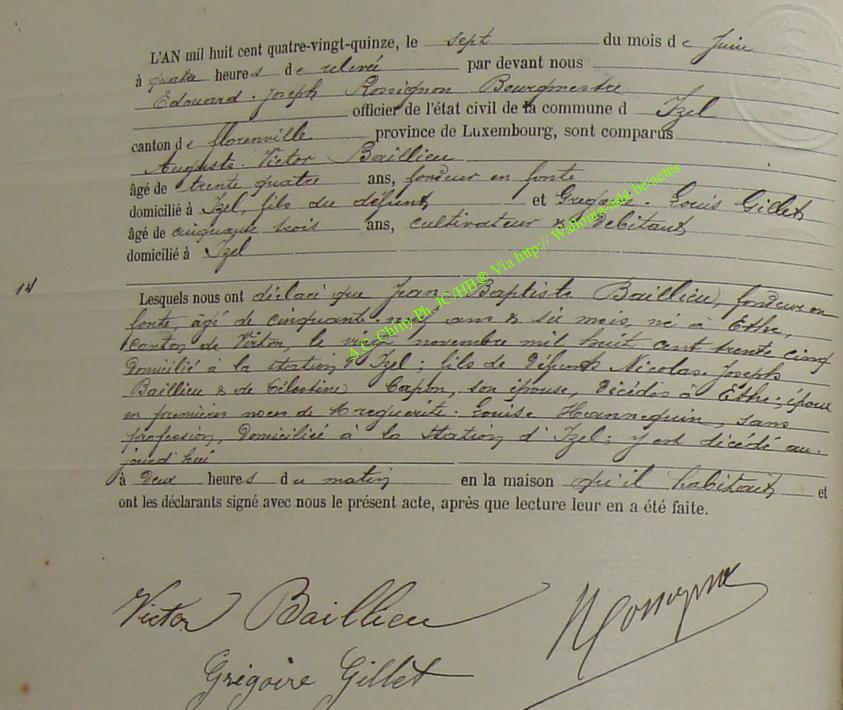 L'AN mil huit cent quatre-vingt-quinze, le sept du mois de Juin
à quatre heures de relevée par devant nous
Edouard-Joseph Rossignon Bourgmestre
officier de l'état civil de la commune d Izel
canton de florenville province de Luxembourg, sont comparus
Auguste-Victor Baillieu
âgé de trente quatre ans, fondeur en fonte
domicilié à Izel, fils du défunt et Grégoire-Louis Gillet
âgé de cinquante trois ans, cultivateur & Débitant
domicilié à Izel
14
Lesquels nous ont déclaré que Jean-Baptiste Baillieu, fondeur en
fonte, âgé de cinquante-neuf ans & six mois, né à Ethe,
canton de Virton, le vingt novembre mil huit cent trente cinq
Domicilié à la station d'Izel; fils de Défunts Nicolas-Joseph
Baillieu & de Célestine Capon, son épouse, Décédés à Ethe; époux
en premières noces de Marguerite-Louise Hannequin, sans
profession, Domiciliée à la Station d'Izel; y est décédé au-
jourd'hui
à Deux heures du matin en la maison qu'il habitait et
ont les déclarants signé avec nous le présent acte, après que lecture leur en a été faite.
Victor Baillieu
Grégoire Gillet
A.C. Chiny Ph. JC /HB® Via http:// Wallonie-asbl.be/actes